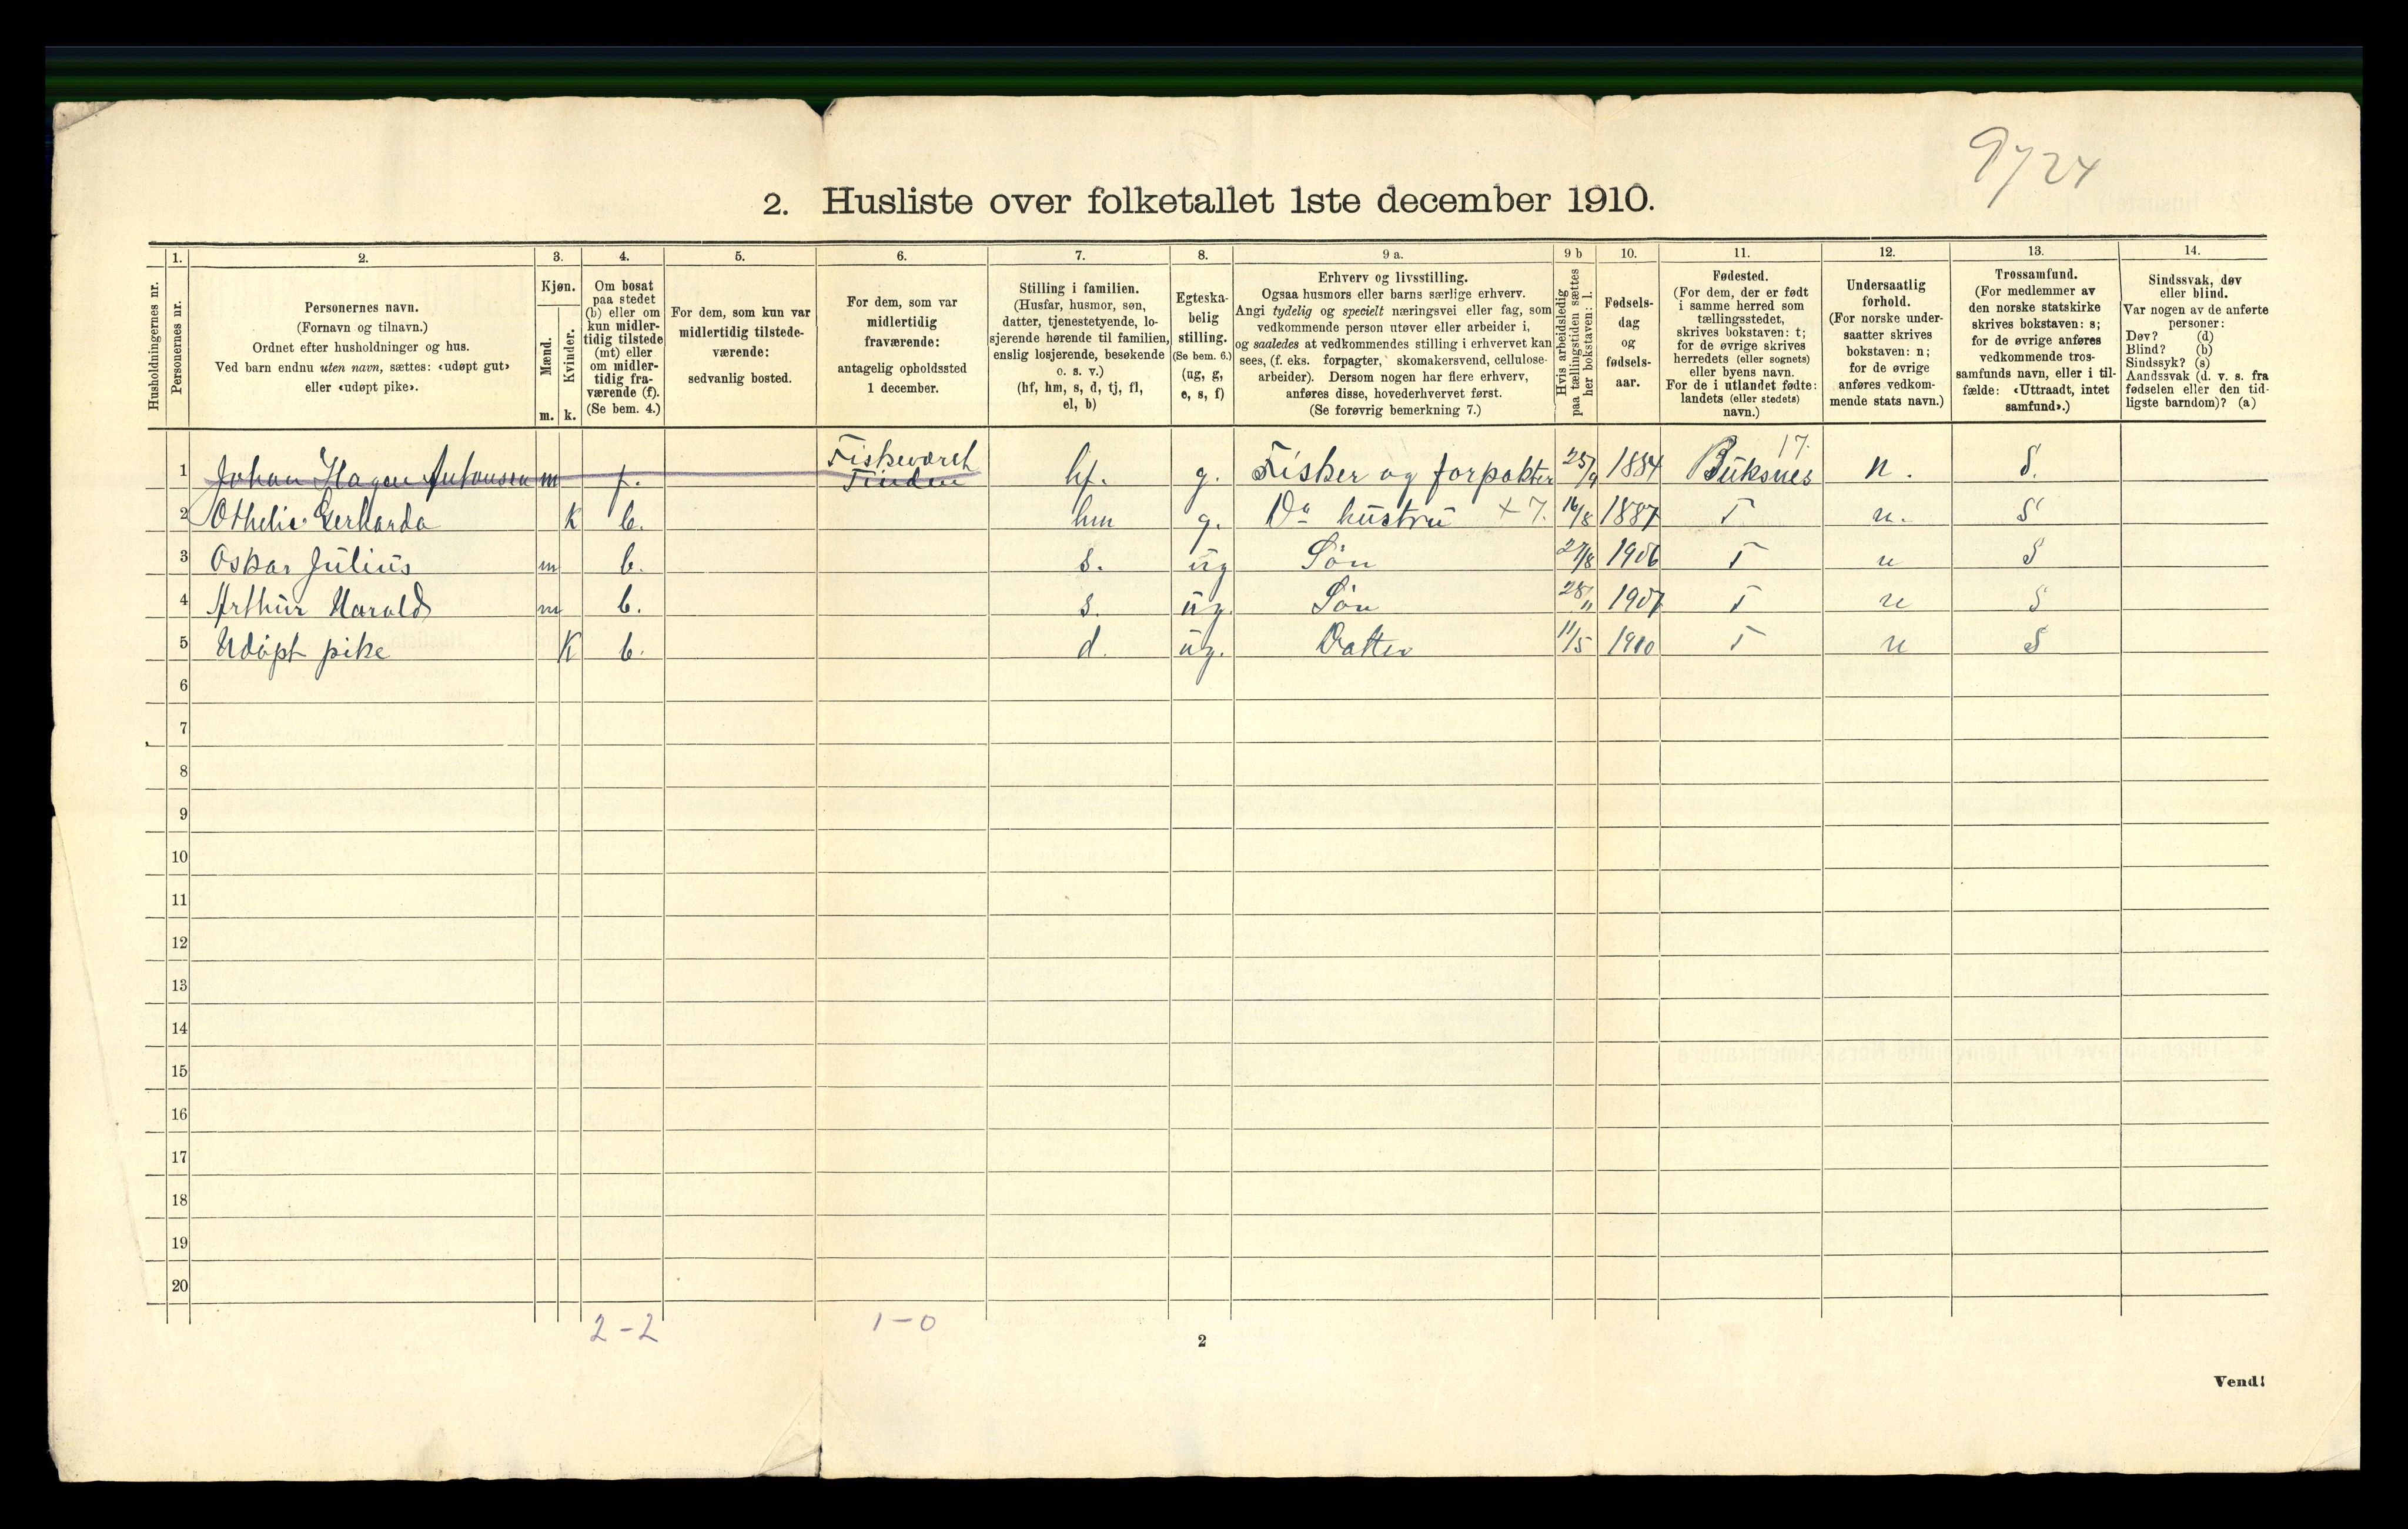 9724
2. Husliste over folketallet 1ste december 1910.
Husholdningernes nr.
1.
Personernes nr.
2.
Personernes navn.
(Fornavn og tilnavn.)
Ordnet efter husholdninger og hus.
Ved barn endnu uten navn, sættes: «udøpt gut»
eller «udøpt pike».
3.
Kjøn.
Mænd.
Kvinder.
m. k.
4.
Om bosat
paa stedet
(b) eller om
kun midler-
tidig tilstede
(mt) eller
om midler-
tidig fra-
værende (f).
(Se bem. 4.)
5.
For dem, som kun var
midlertidig tilstede-
værende:
sedvanlig bosted.
6.
For dem, som var
midlertidig
fraværende:
antagelig opholdssted
1 december.
7.
Stilling i familien.
(Husfar, husmor, søn,
datter, tjenestetyende, lo-
sjerende hørende til familien,
enslig losjerende, besøkende
o. s. v.)
(hf, hm, s, d, tj, fl,
el, b)
8.
Egteska-
belig
stilling.
(Se bem. 6.)
(ug, g,
e, s, f)
9 a.
Erhverv og livsstilling.
Ogsaa husmors eller barns særlige erhverv.
Angi tydelig og specielt næringsvei eller fag, som
vedkommende person utøver eller arbeider i,
og saaledes at vedkommendes stilling i erhvervet kan
sees, (f. eks. forpagter, skomakersvend, cellulose-
arbeider). Dersom nogen har flere erhverv,
anføres disse, hovederhvervet først.
(Se forøvrig bemerkning 7.)
9 b
Hvis arbeidsledig
paa tællingstiden sættes
her bokstaven: l.
10.
Fødsels-
dag
og
fødsels-
aar.
11.
Fødested.
(For dem, der er født
i samme herred som
tællingsstedet,
skrives bokstaven: t;
for de øvrige skrives
herredets (eller sognets)
eller byens navn.
For de i utlandet fødte:
landets (eller stedets)
navn.)
12.
Undersaatlig
forhold.
(For norske under-
saatter skrives
bokstaven: n;
for de øvrige
anføres vedkom-
mende stats navn.)
13.
Trossamfund.
(For medlemmer av
den norske statskirke
skrives bokstaven: s;
for de øvrige anføres
vedkommende tros-
samfunds navn, eller i til-
fælde: «Uttraadt, intet
samfund».)
14.
Sindssvak, døv
eller blind.
Var nogen av de anførte
personer:
Døv? (d)
Blind? (b)
Sindssyk? (s)
Aandssvak (d. v. s. fra
fødselen eller den tid-
ligste barndom)? (a)
Fiskeværet 17.
1 Johan Hagen Antonsen m f. Tinden hf. g. Fisker og forpakter 25/9 1884 Buksnes n. S.
2 Othelie Gerharda k b. hm g. Do hustru + 7. 16/8 1887 T n. S
3 Oskar Julius m b. s. ug Søn 27/8 1906 T n S
4 Arthur Harald m b. s. ug. Søn 28/11 1907 T n S
5 Udøpt pike K b. d. ug. Datter 11/5 1910 T n S
6
7
8
9
10
11
12
13
14
15
16
17
18
19
20
2-2 1-0
2
Vend!